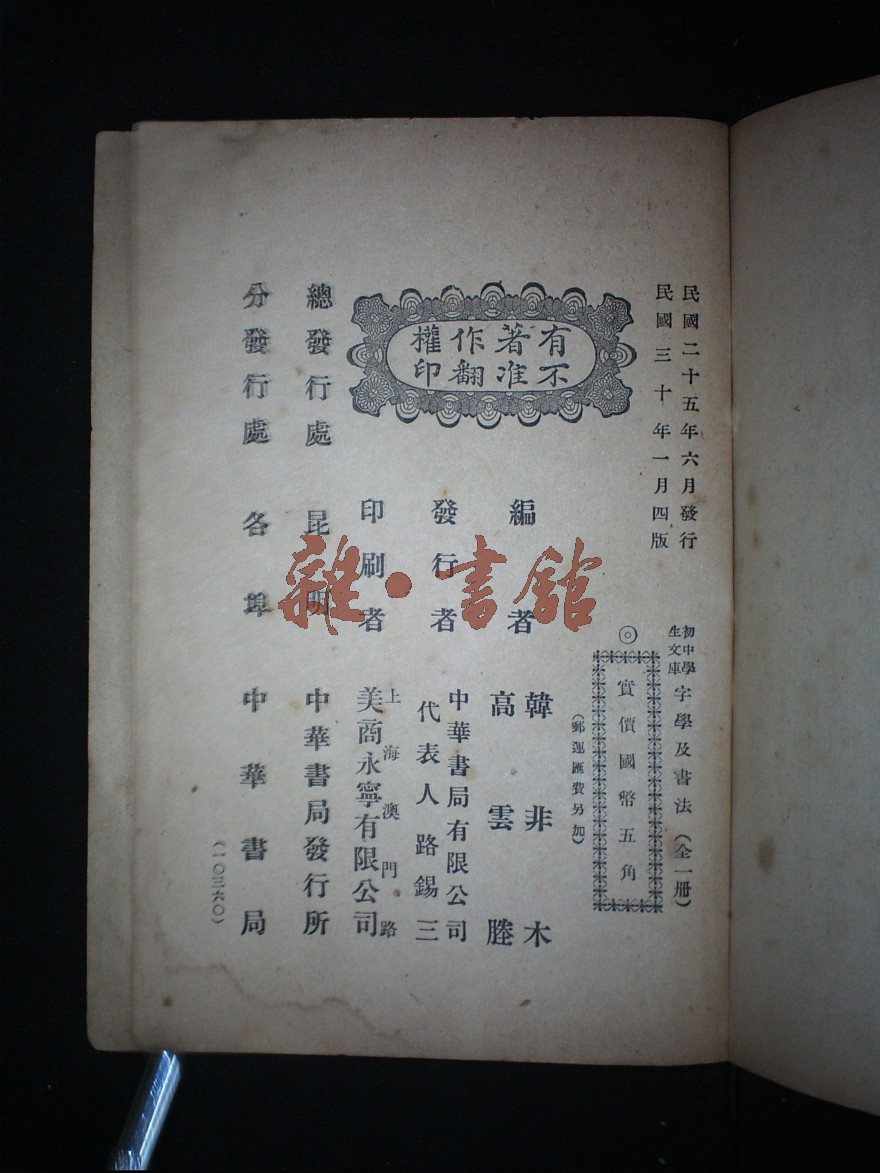 民國二十五年六月發行
民國三十年一月四版
初中學
生文庫
字學及書法(全一册)
◎
實價國幣五角
(郵運匯費另加)
有著作權
不准翻印
編者
韓非木
高雲塍
發行者
中華書局有限公司
代表人路錫三
印刷者
上海澳門路
美商永寧有限公司
總發行處
昆明
中華書局發行所
分發行處
各埠
中華書局
(一〇三六〇)
雜·書館